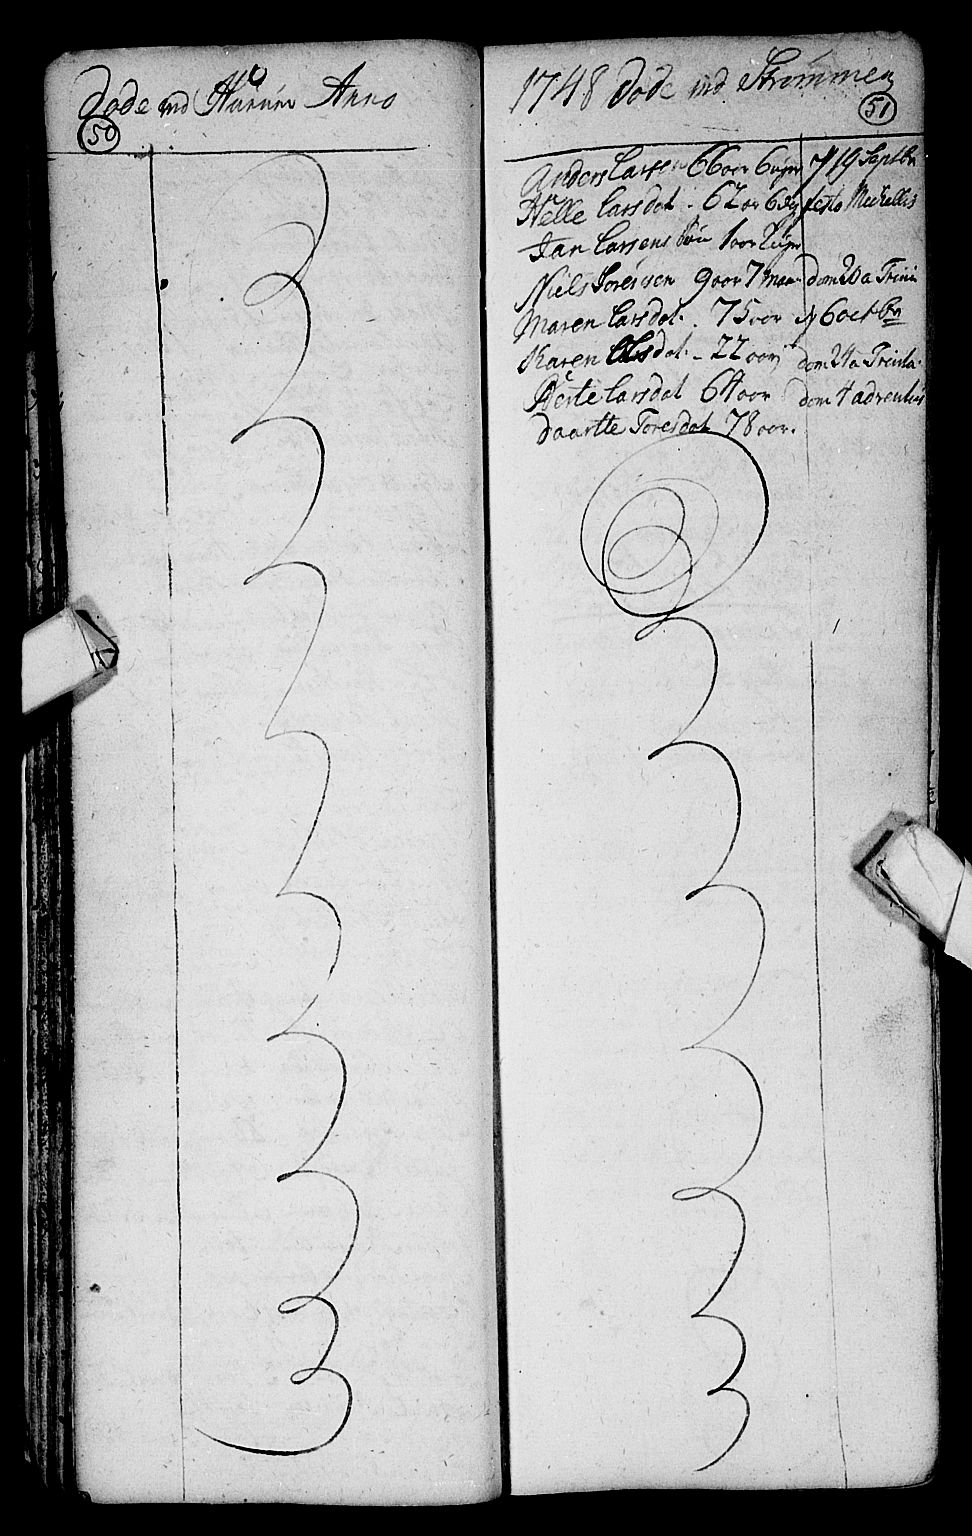 Døde ind Hurum Anno
50
1748 Døde ind Strømmen
51
Anders Larsen 66 oor 6 uger d 19 Septbr
Helle Larsdat. 62 oor 6 festo Michellis
Jan Larsens 1 oor 2 uger
Niels Soresen 9 oor 7 maa. dom 20 a Trini
Maren Larsdat. 75 oor d 6 octbr
Karen Olsdat. 22 oor dom 24 a Trinita.
Berte Larsdat 64 oor dom 4 adventus
daartte Toresdat 78 oor.